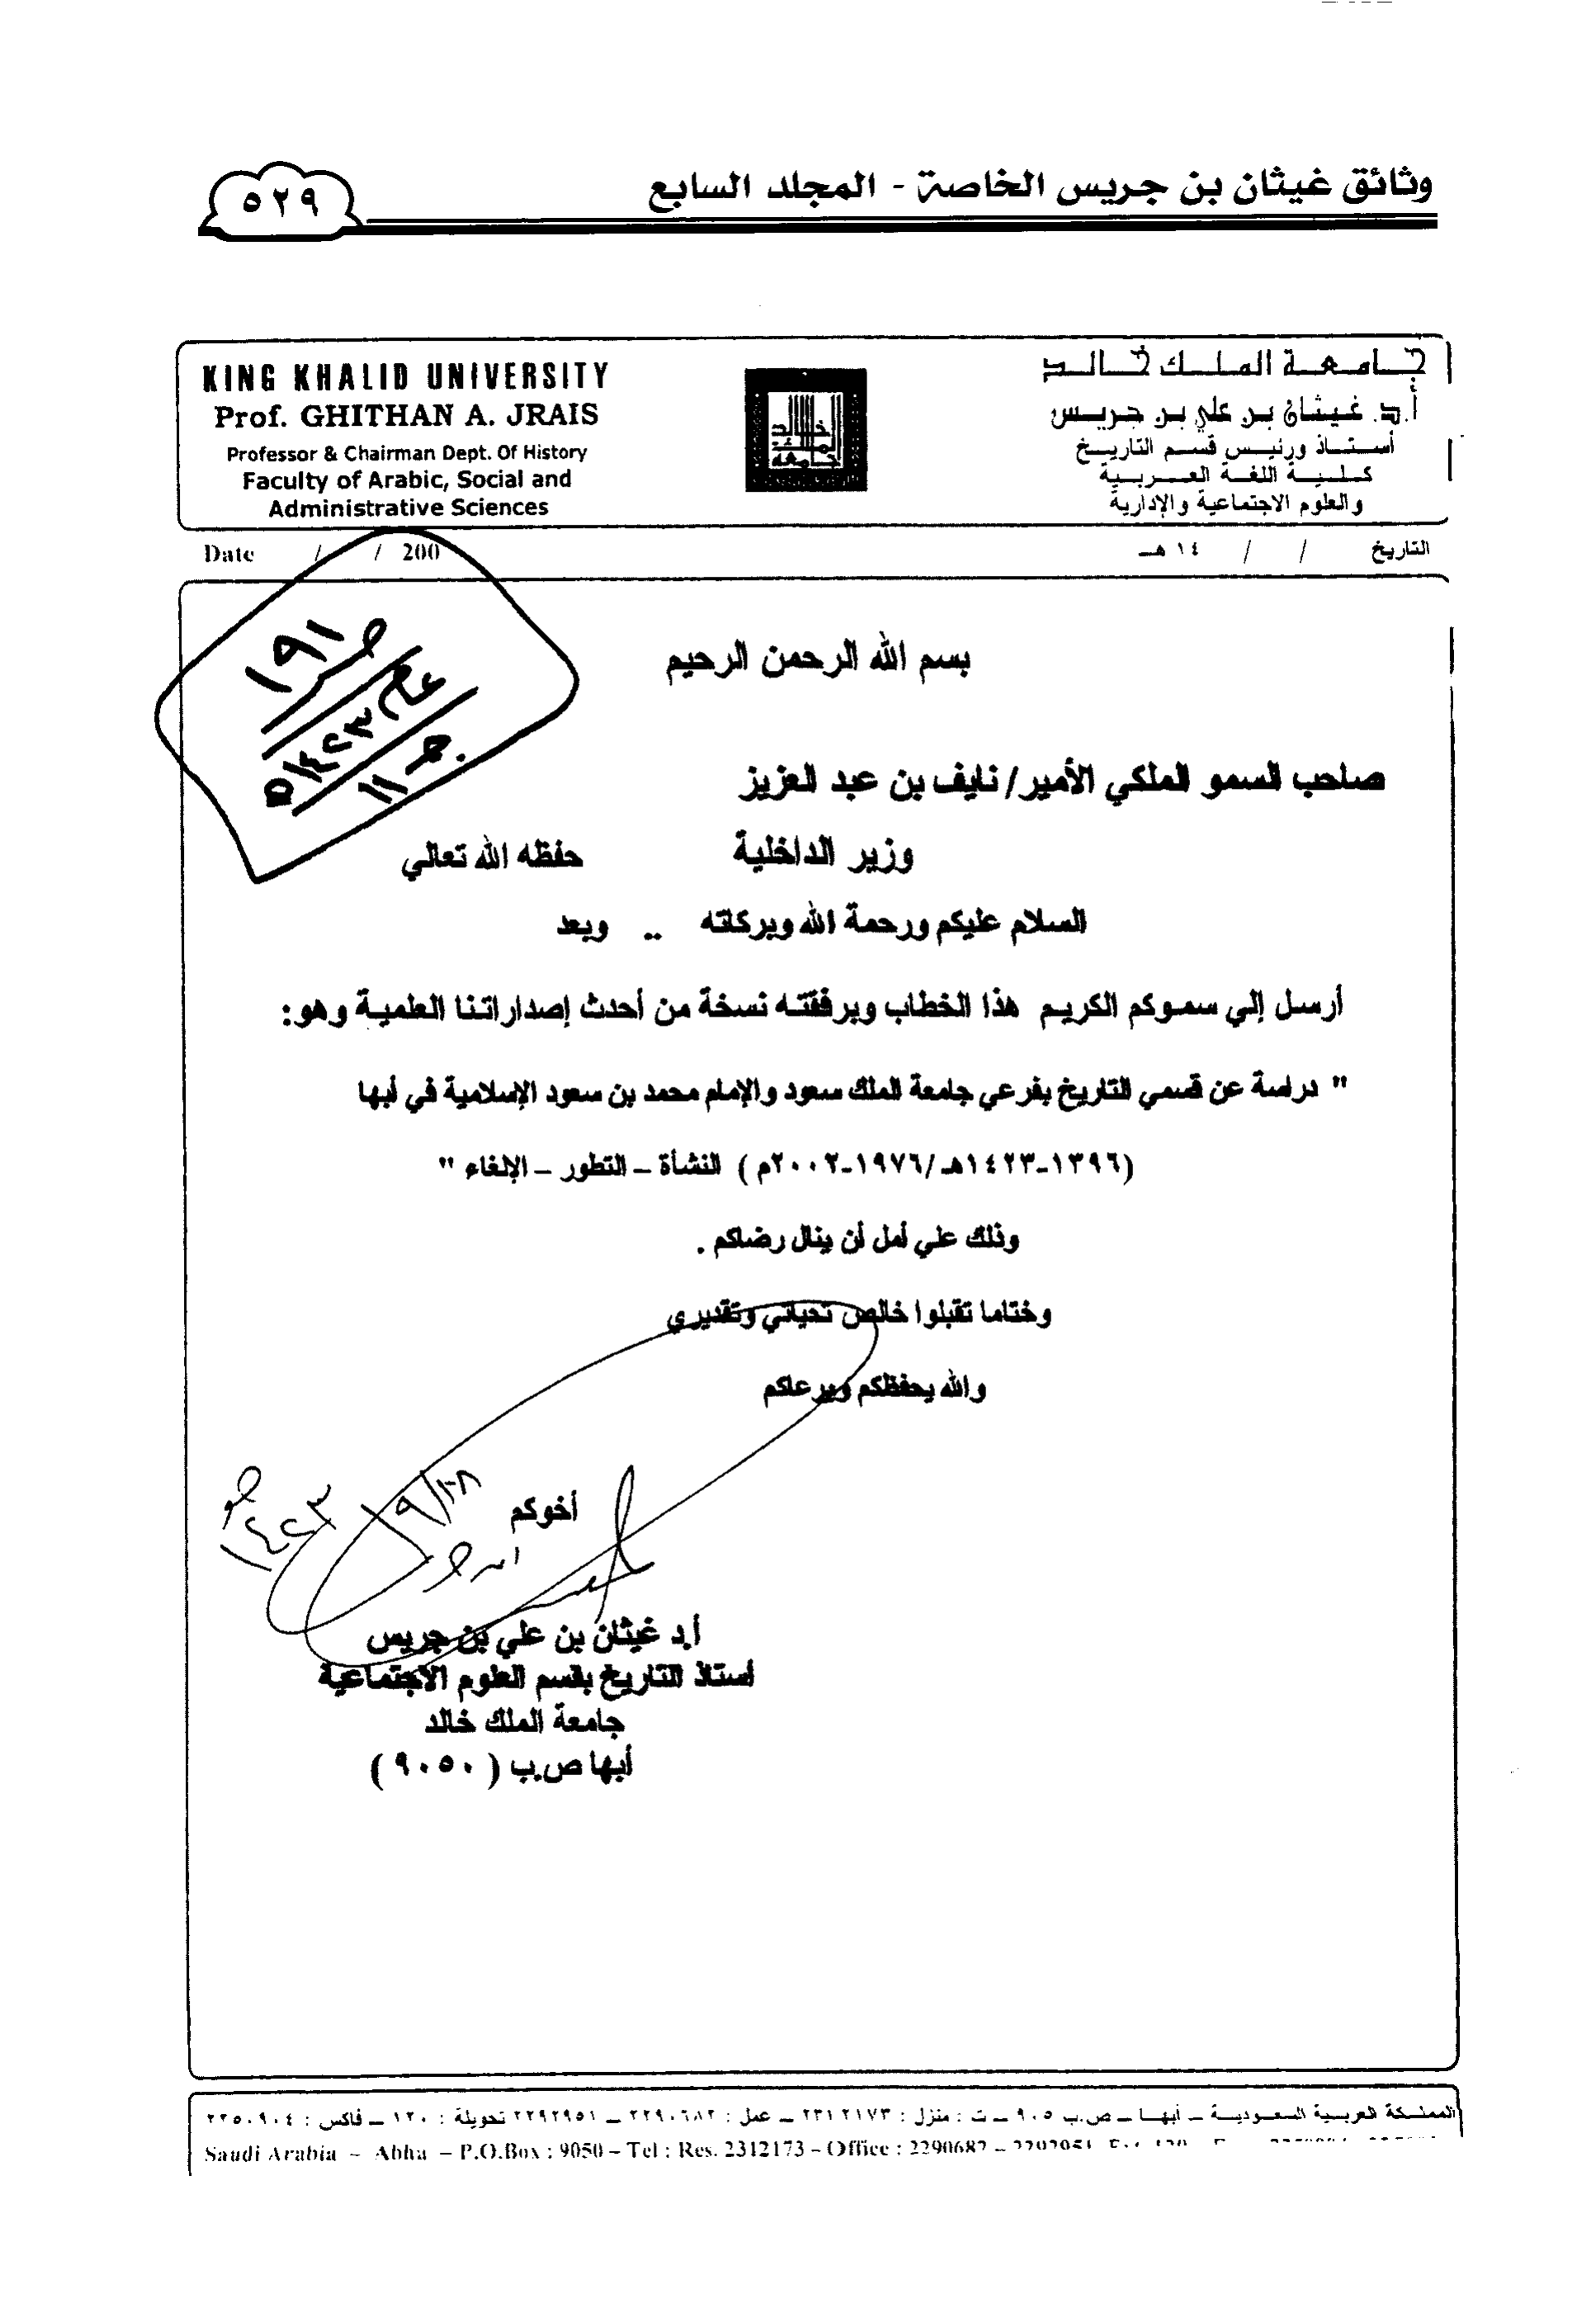 وثائق غيثان بن جريس الخاصة - المجلد السابع
٥٢٩
KING KHALID UNIVERSITY
Prof. GHITHAN A. JRAIS
Professor & Chairman Dept. Of History
Faculty of Arabic, Social and
Administrative Sciences
جامعة الملك خالد
أ.د. غيثان بن علي بن جريس
أستاذ ورئيس قسم التاريخ
كلية اللغة العربية
والعلوم الاجتماعية والإدارية
خالد
الملك
جامعة
Date / / 200
التاريخ / / ١٤ هـ
ص ١٩١
عام ١٤٢٣هـ
جـ ١١
بسم الله الرحمن الرحيم
صاحب السمو الملكي الأمير/ نايف بن عبد العزيز
وزير الداخلية حفظه الله تعالي
السلام عليكم ورحمة الله وبركاته .. وبعد
أرسل إلي سموكم الكريم هذا الخطاب وبرفقته نسخة من أحدث إصداراتنا العلمية وهو:
" دراسة عن قسمي التاريخ بفرعي جامعة الملك سعود والإمام محمد بن سعود الإسلامية في أبها
(١٣٩٦-١٤٢٣هـ/١٩٧٦-٢٠٠٢م ) النشأة – التطور – الإلغاء "
وذلك علي أمل أن ينال رضاكم .
وختاما تقبلوا خالص تحياتي وتقديري
والله يحفظكم ويرعاكم
أخوكم
١٤٢٣
أ.د غيثان بن علي بن جريس
أستاذ التاريخ بقسم العلوم الاجتماعية
جامعة الملك خالد
أبها ص.ب ( ٩٠٥٠ )
المملكة العربية السعودية – أبها – ص.ب ٩٠٥ – ت : منزل : ٢٣١٢١٧٣ – عمل : ٢٢٩٠٦٨٢ – ٢٢٩٢٩٥١ تحويلة : ١٢٠ – فاكس : ٢٢٥٠٩٠٤
Saudi Arabia – Abha – P.O.Box : 9050 – Tel : Res. 2312173 – Office : 2290682 –